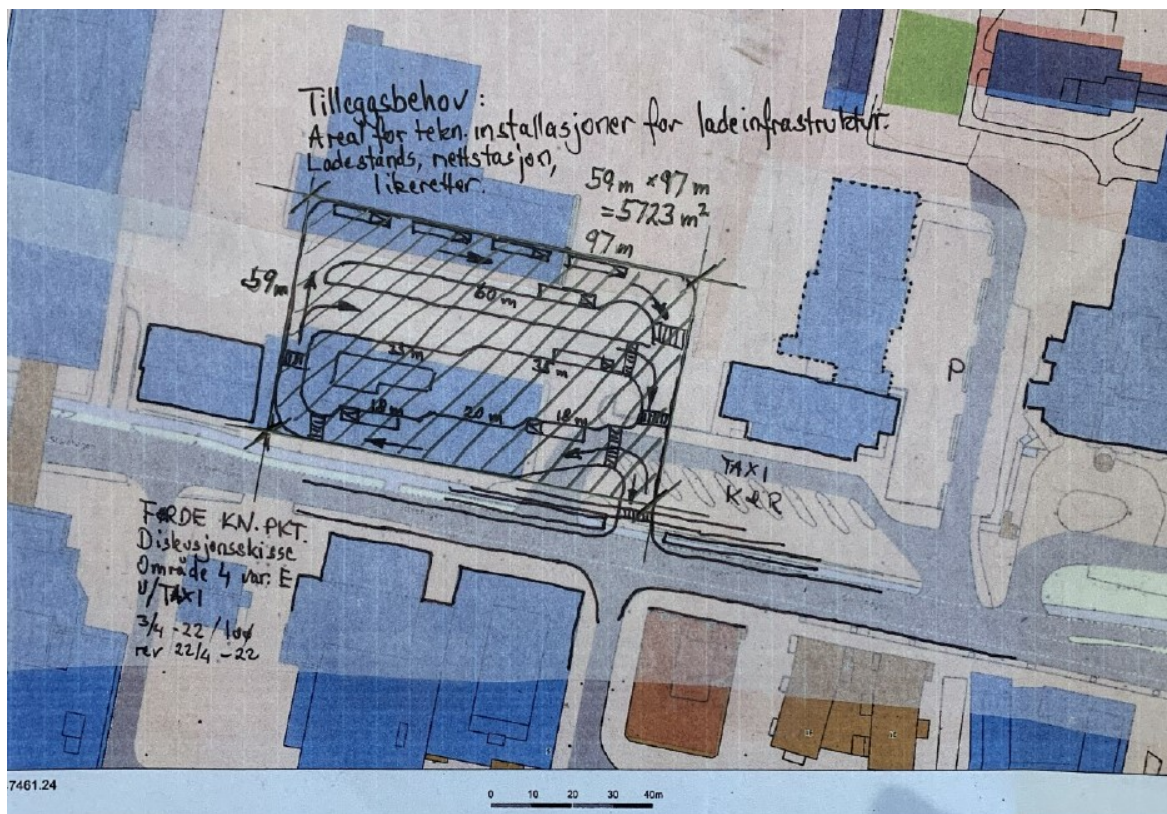 Tilleggsbehov:
Areal for tekn. installasjoner for ladeinfrastruktur.
Ladestands, nettstasjon,
likeretter.
59 m × 97 m
= 5723 m²
97 m
59 m
60 m
35 m
18 m
20 m
18 m
P
TAXI
K & R
FØRDE KN. PKT.
Diskusjonsskisse
Område 4 var. E
U/TAXI
rev 22/4 -22
7461.24
0 10 20 30 40m